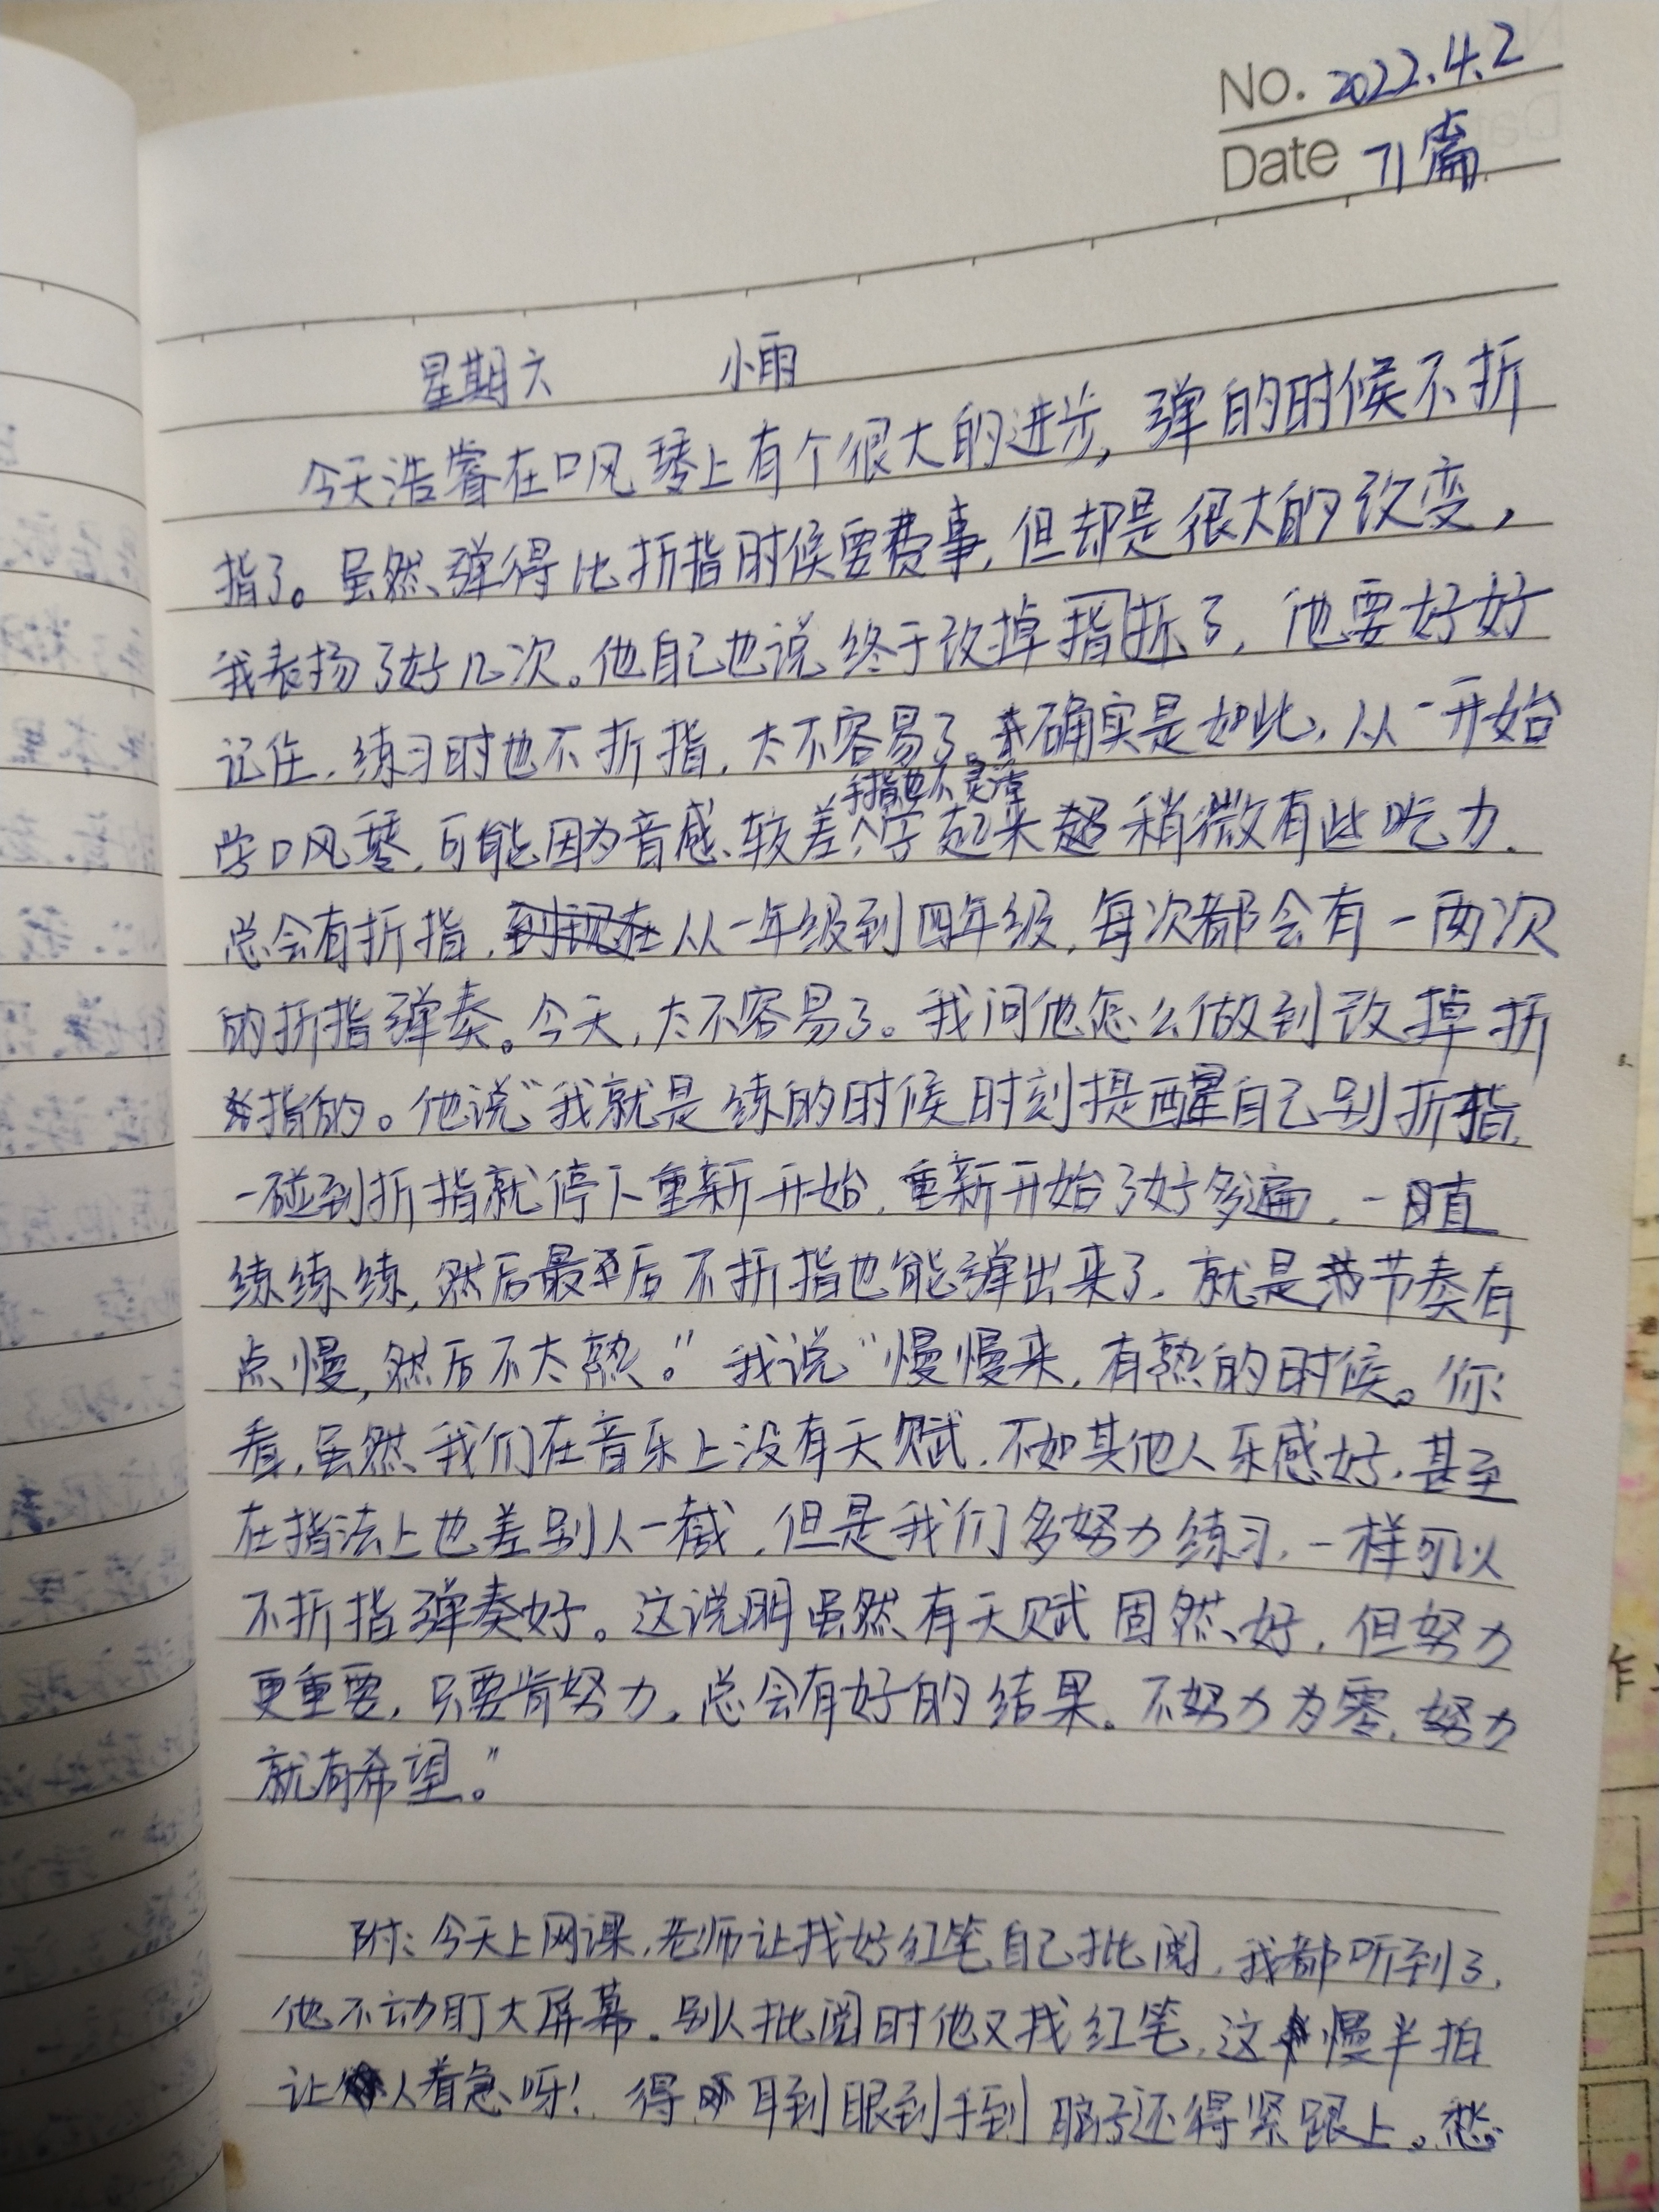 No. 2022.4.2
Date 71篇
星期六 小雨
今天浩睿在口风琴上有个很大的进步，弹的时候不折
指了。虽然弹得比折指时候要费事，但却是很大的改变，
我表扬了好几次。他自己也说终于改掉指折了，他要好好
记住，练习时也不折指，太不容易了。确实是如此，从一开始
手指也不灵活
学口风琴，可能因为音感较差，学起来超稍微有些吃力，
总会有折指，到现在从一年级到四年级，每次都会有一两次
的折指弹奏。今天，太不容易了。我问他怎么做到改掉折
指的。他说“我就是练的时候时刻提醒自己别折指，
一碰到折指就停下重新开始，重新开始了好多遍，一直
练练练，然后最后不折指也能弹出来了，就是节奏有
点慢，然后不太熟。”我说“慢慢来，有熟的时候。你
看，虽然我们在音乐上没有天赋，不如其他人乐感好，甚至
在指法上也差别人一截，但是我们多努力练习，一样可以
不折指弹奏好。这说明虽然有天赋固然好，但努力
更重要，只要肯努力，总会有好的结果。不努力为零，努力
就有希望。”
附：今天上网课，老师让找好红笔自己批阅，我都听到了，
他不动盯大屏幕。别人批阅时他又找红笔，这慢半拍
让人着急呀！得耳到眼到手到脑子还得紧跟上。愁